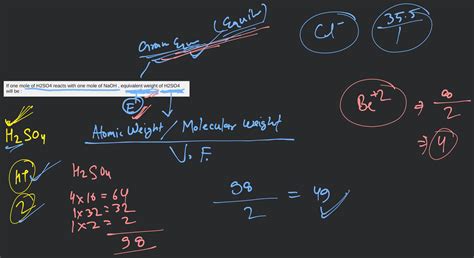 Cl-
35.5
1
If one mole of H2SO4 reacts with one mole of NaOH , equivalent weight of H2SO4
will be :
Be+2 ⇒
2
⇒ 4
Atomic Weight / Molecular Weight
V. F.
H2SO4
2
H2SO4
4x16 = 64
1x32 = 32
1x2 = 2
98
98
2
= 49